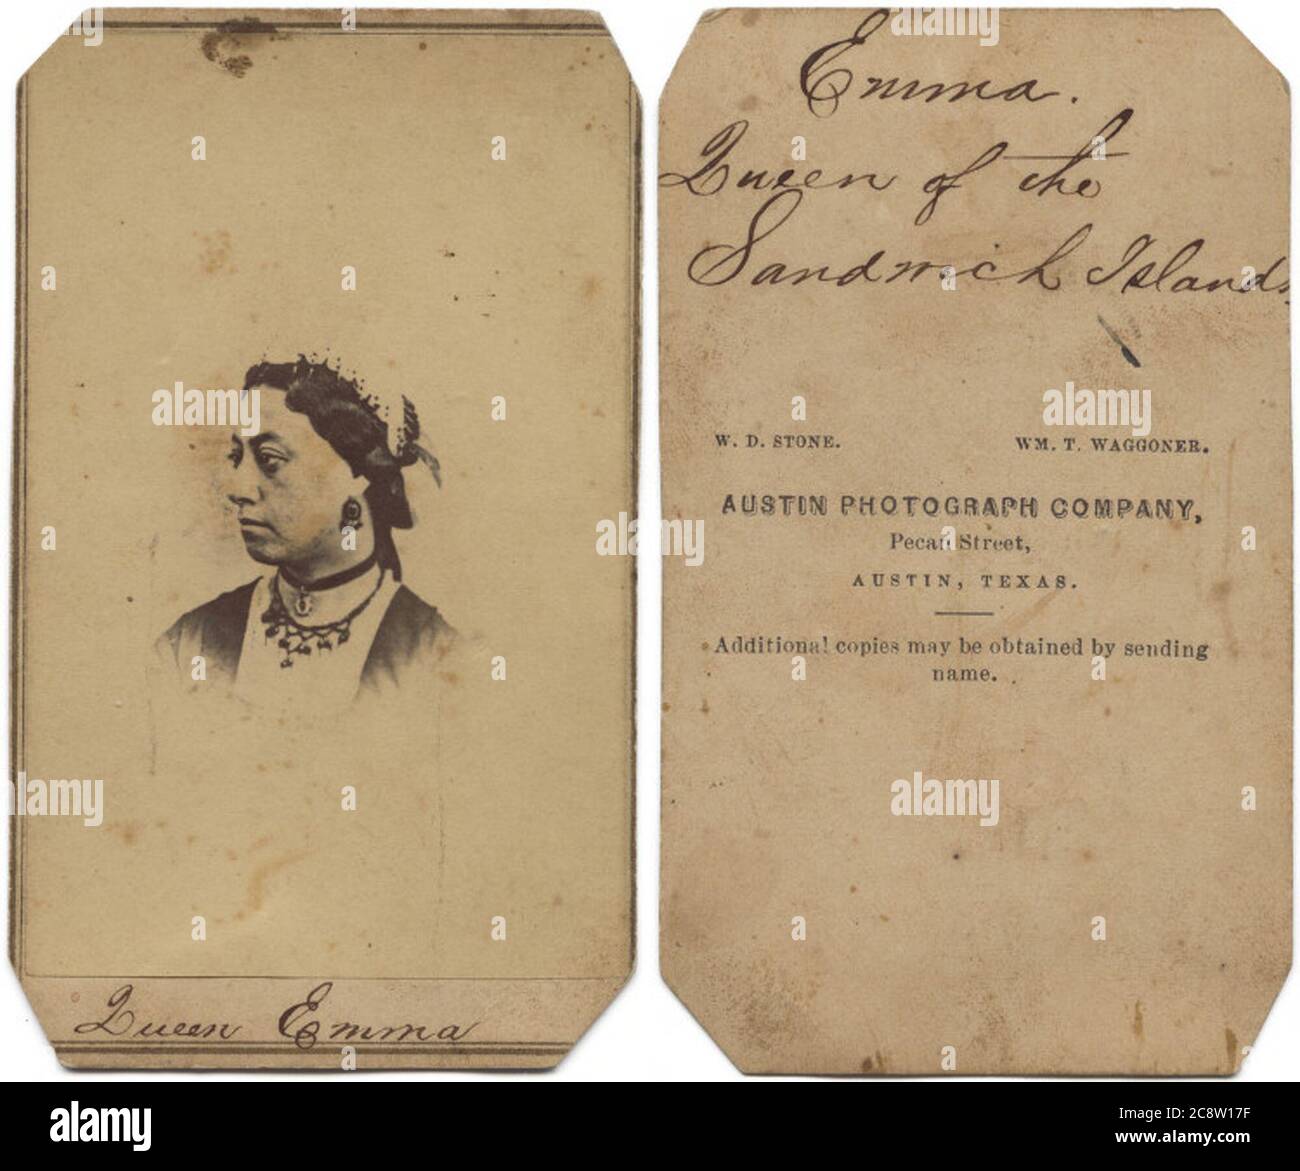 Queen Emma
Emma.
Queen of the
Sandwich Islands
W. D. STONE. WM. T. WAGGONER.
AUSTIN PHOTOGRAPH COMPANY,
Pecan Street,
AUSTIN, TEXAS.
Additional copies may be obtained by sending
name.
alamy
alamy
Image ID: 2C8W17F
www.alamy.com